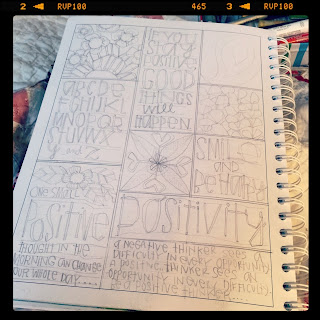 2 RVP100 465 3 RVP100
STAY
POSITIVE
GOOD
THINGS
Will
HAPPEN
ABCDE
FGHIJK
LMNOPQR
STUVWX
Y and Z
SMILE
AND
BE HAPPY
ONE SMALL
POSITIVE
THOUGHT IN THE
MORNING CAN CHANGE
OUR WHOLE DAY....
POSITIVITY
A NEGATIVE THINKER SEES
DIFFICULTY IN EVERY OPPORTUNITY
A POSITIVE THINKER SEES AN
OPPORTUNITY IN EVERY DIFFICULTY